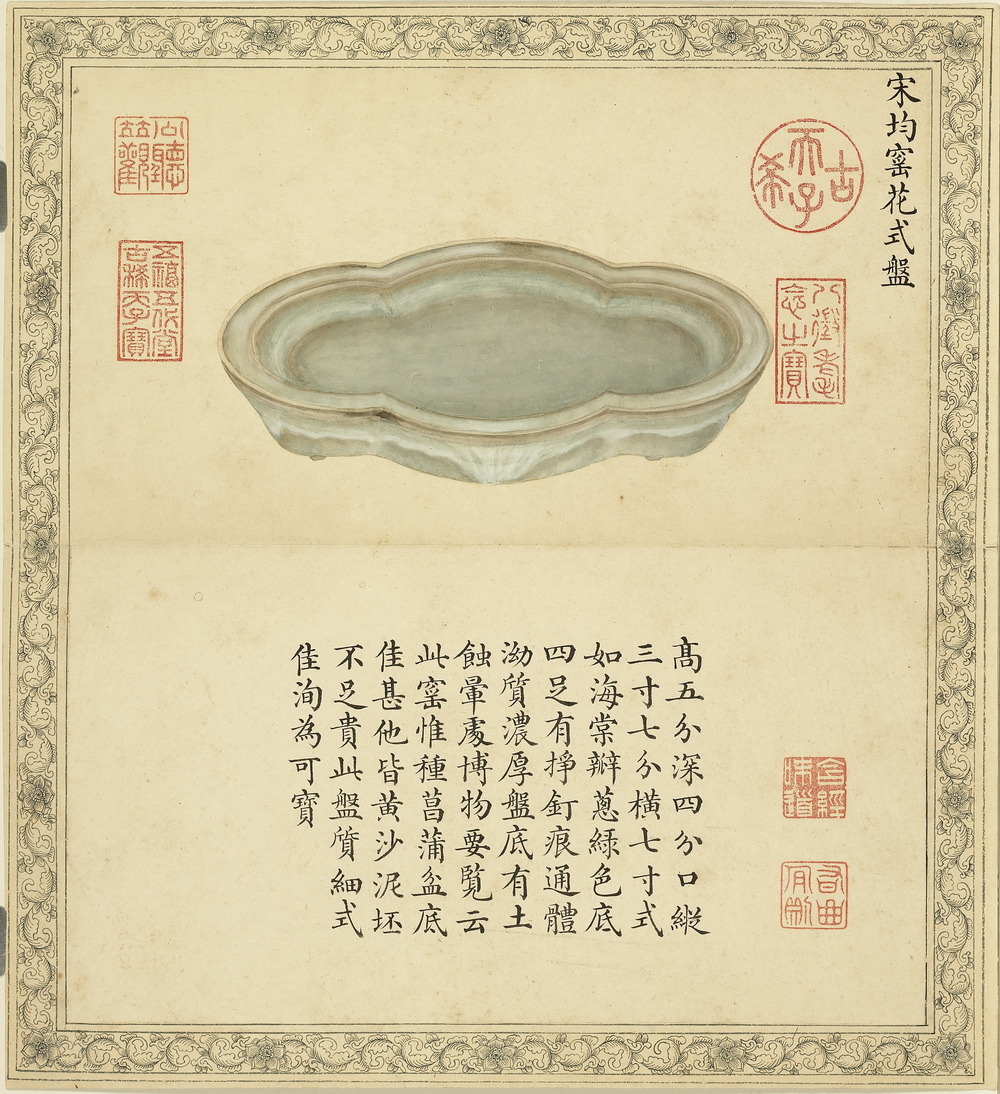 宋均窰花式盤
古希天子
八徵耄念之寶
髙五分深四分口縱
三寸七分橫七寸式
如海棠瓣蔥綠色底
四足有掙釘痕通體
泑質濃厚盤底有土
蝕暈處博物要覽云
此窰惟種菖蒲盆底
佳甚他皆黃沙泥坯
不足貴此盤質細式
佳洵為可寶
含經味道
公聽竝觀
五福五代堂古稀天子寶